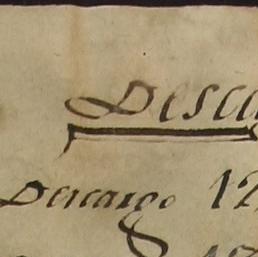 Desca
Descargo 12